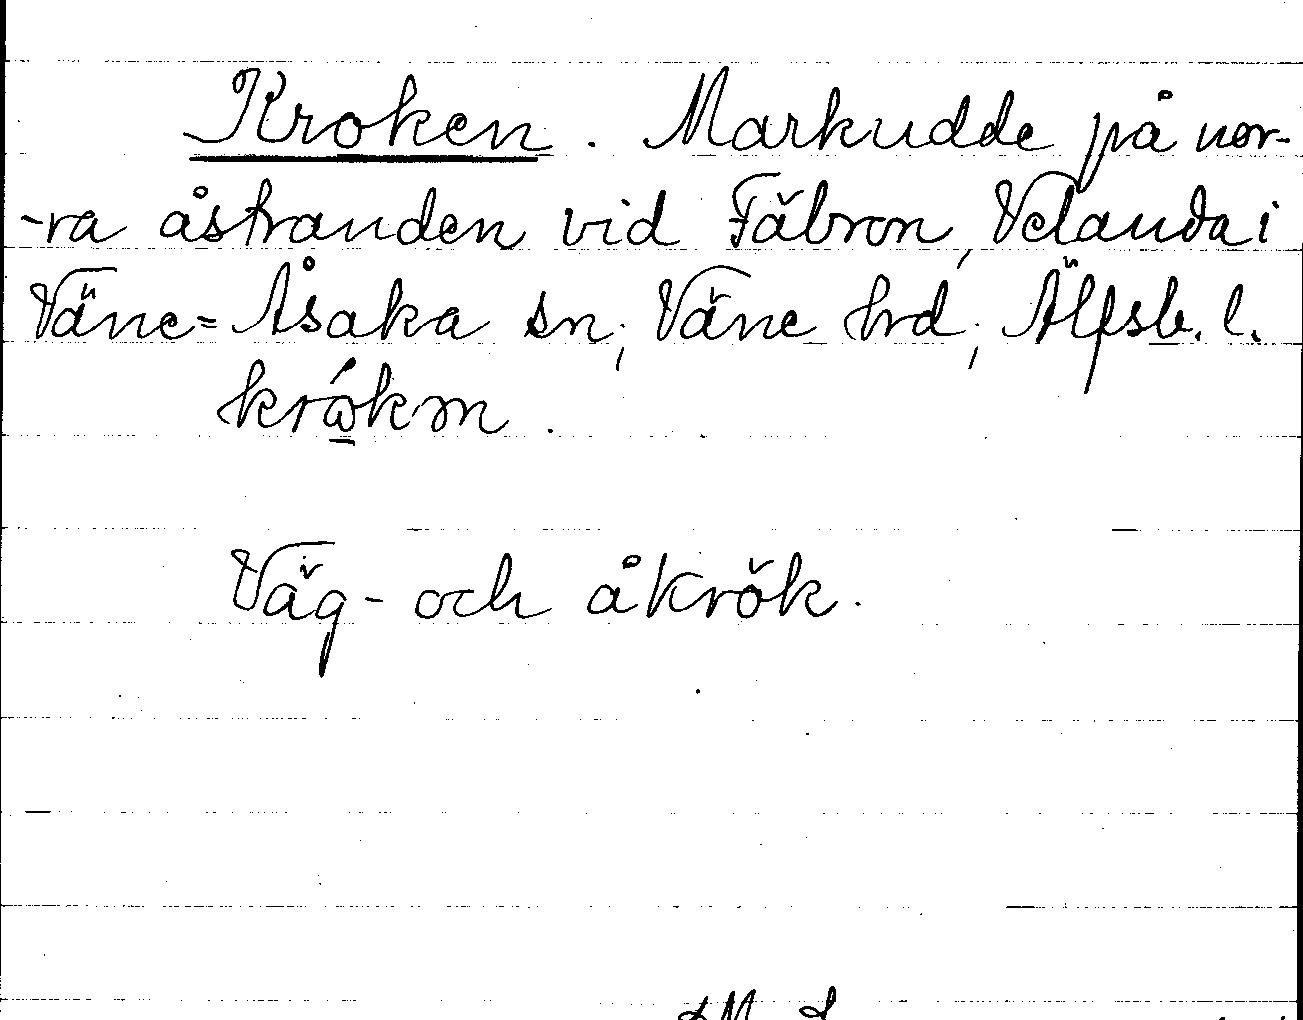 Kroken. Markudde på nor-
-ra åstranden vid Fäbron, Velanda i
Väne=Åsaka sn; Väne hrd; Älfsb. l.
Väg- och åkrök.